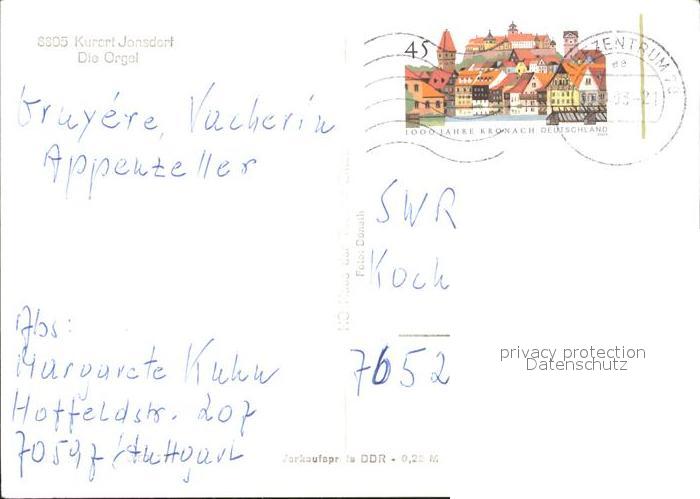 8805 Kurort Jonsdorf
Die Orgel
45
1000 JAHRE KRONACH DEUTSCHLAND
ZENTRUM
Gruyére, Vacherin
Appenzeller
SWR
Koch
7652
Foto: Donath
Abs:
Margarete Kuhn
Hoffeldstr. 207
70597 Stuttgart
Verkaufspreis DDR - 0,25 M
privacy protection
Datenschutz